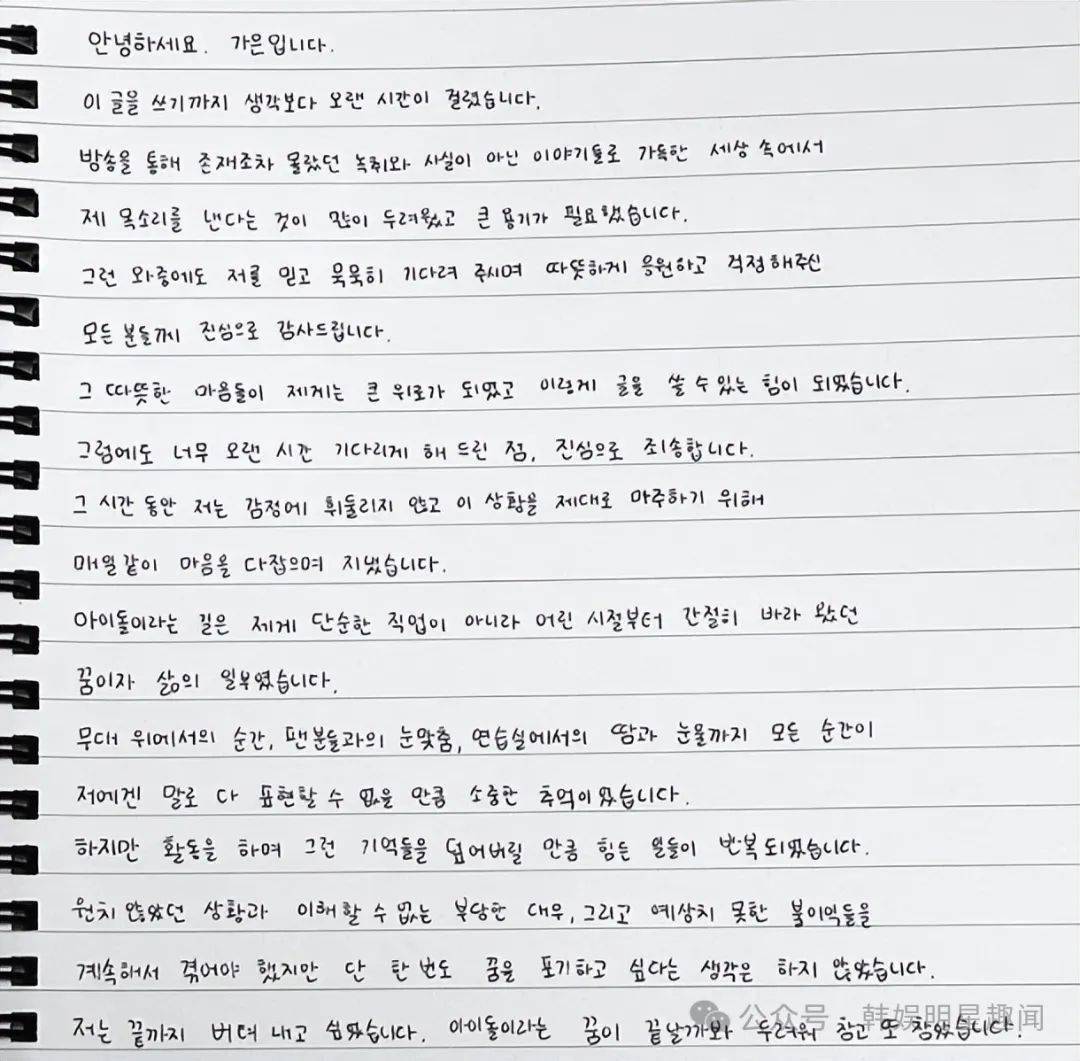 안녕하세요. 가은입니다.
이 글을 쓰기까지 생각보다 오랜 시간이 걸렸습니다.
방송을 통해 존재조차 몰랐던 녹취와 사실이 아닌 이야기들로 가득한 세상 속에서
제 목소리를 낸다는 것이 많이 두려웠고 큰 용기가 필요했습니다.
그런 와중에도 저를 믿고 묵묵히 기다려 주시며 따뜻하게 응원하고 걱정해주신
모든 분들께 진심으로 감사드립니다.
그 따뜻한 마음들이 제게는 큰 위로가 되었고 이렇게 글을 쓸 수 있는 힘이 되었습니다.
그럼에도 너무 오랜 시간 기다리게 해 드린 점, 진심으로 죄송합니다.
그 시간 동안 저는 감정에 휘둘리지 않고 이 상황을 제대로 마주하기 위해
매일같이 마음을 다잡으며 지냈습니다.
아이돌이라는 길은 제게 단순한 직업이 아니라 어린 시절부터 간절히 바라 왔던
꿈이자 삶의 일부였습니다.
무대 위에서의 순간, 팬분들과의 눈맞춤, 연습실에서의 땀과 눈물까지 모든 순간이
저에겐 말로 다 표현할 수 없을 만큼 소중한 추억이었습니다.
하지만 활동을 하며 그런 기억들을 덮어버릴 만큼 힘든 일들이 반복되었습니다.
원치 않았던 상황과 이해할 수 없는 부당한 대우, 그리고 예상치 못한 불이익들을
계속해서 겪어야 했지만 단 한 번도 꿈을 포기하고 싶다는 생각은 하지 않았습니다.
저는 끝까지 버텨 내고 싶었습니다. 아이돌이라는 꿈이 끝날까봐 두려워 참고 또 참았습니다.
公众号 · 韩娱明星趣闻